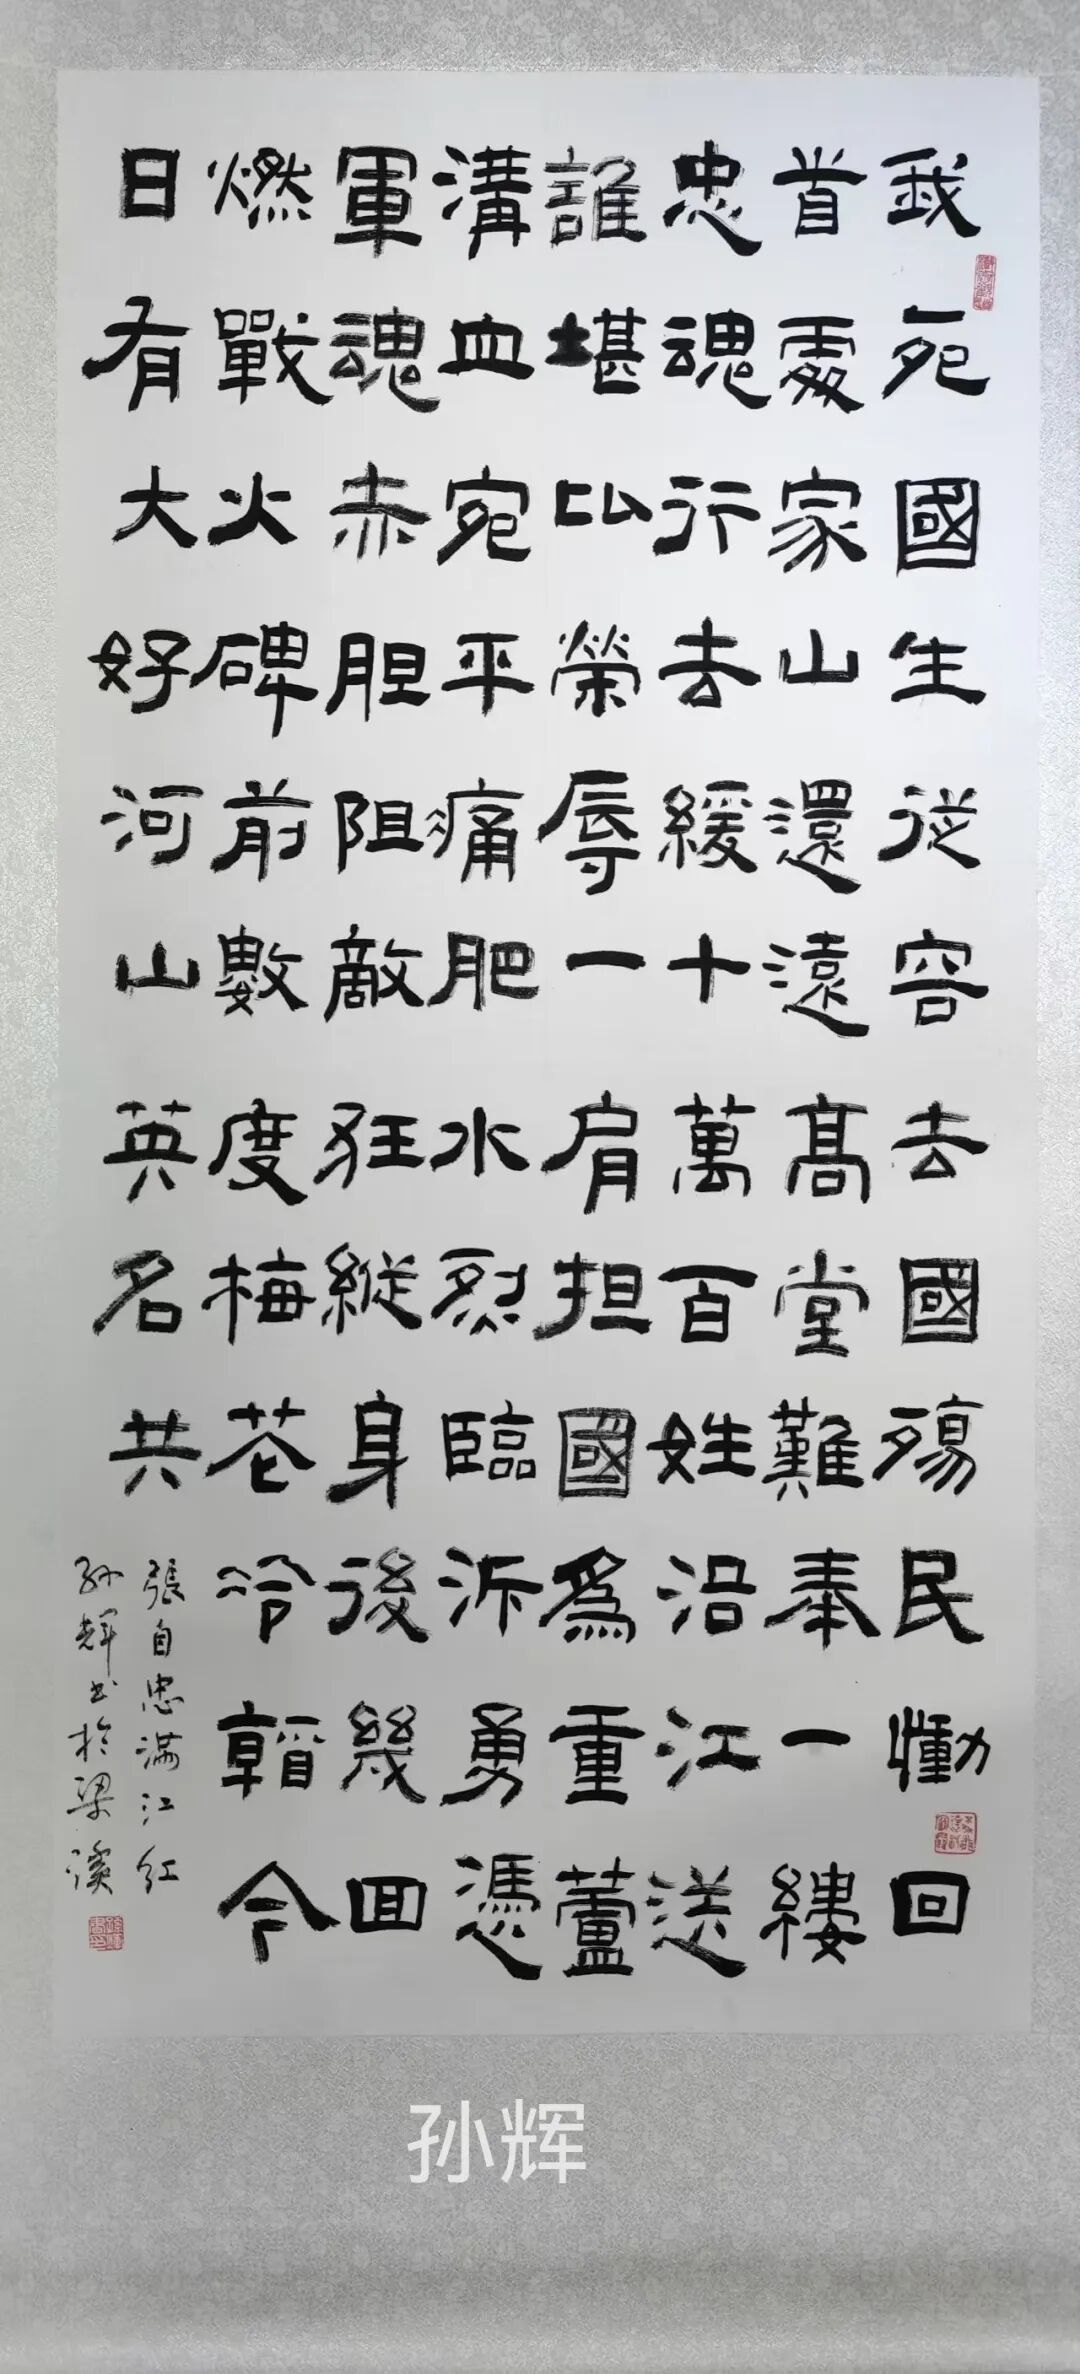 我死國生從容去國殤民慟回
首處家山還遠高堂難奉一縷
忠魂行去緩十萬百姓沿江送
誰堪比榮辱一肩担國為重蘆
溝血宛平痛肥水烈臨沂勇憑
軍魂赤胆阻敵狂縱身後幾回
燃戰火碑前數度梅花冷韜今
日有大好河山英名共
張自忠滿江紅
孙輝书於梁溪
孙辉